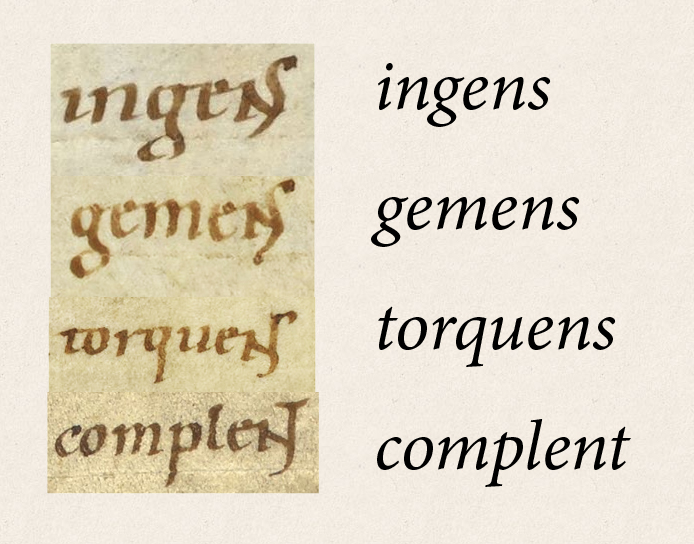 ingens ingens
gemens gemens
torquens torquens
complent complent